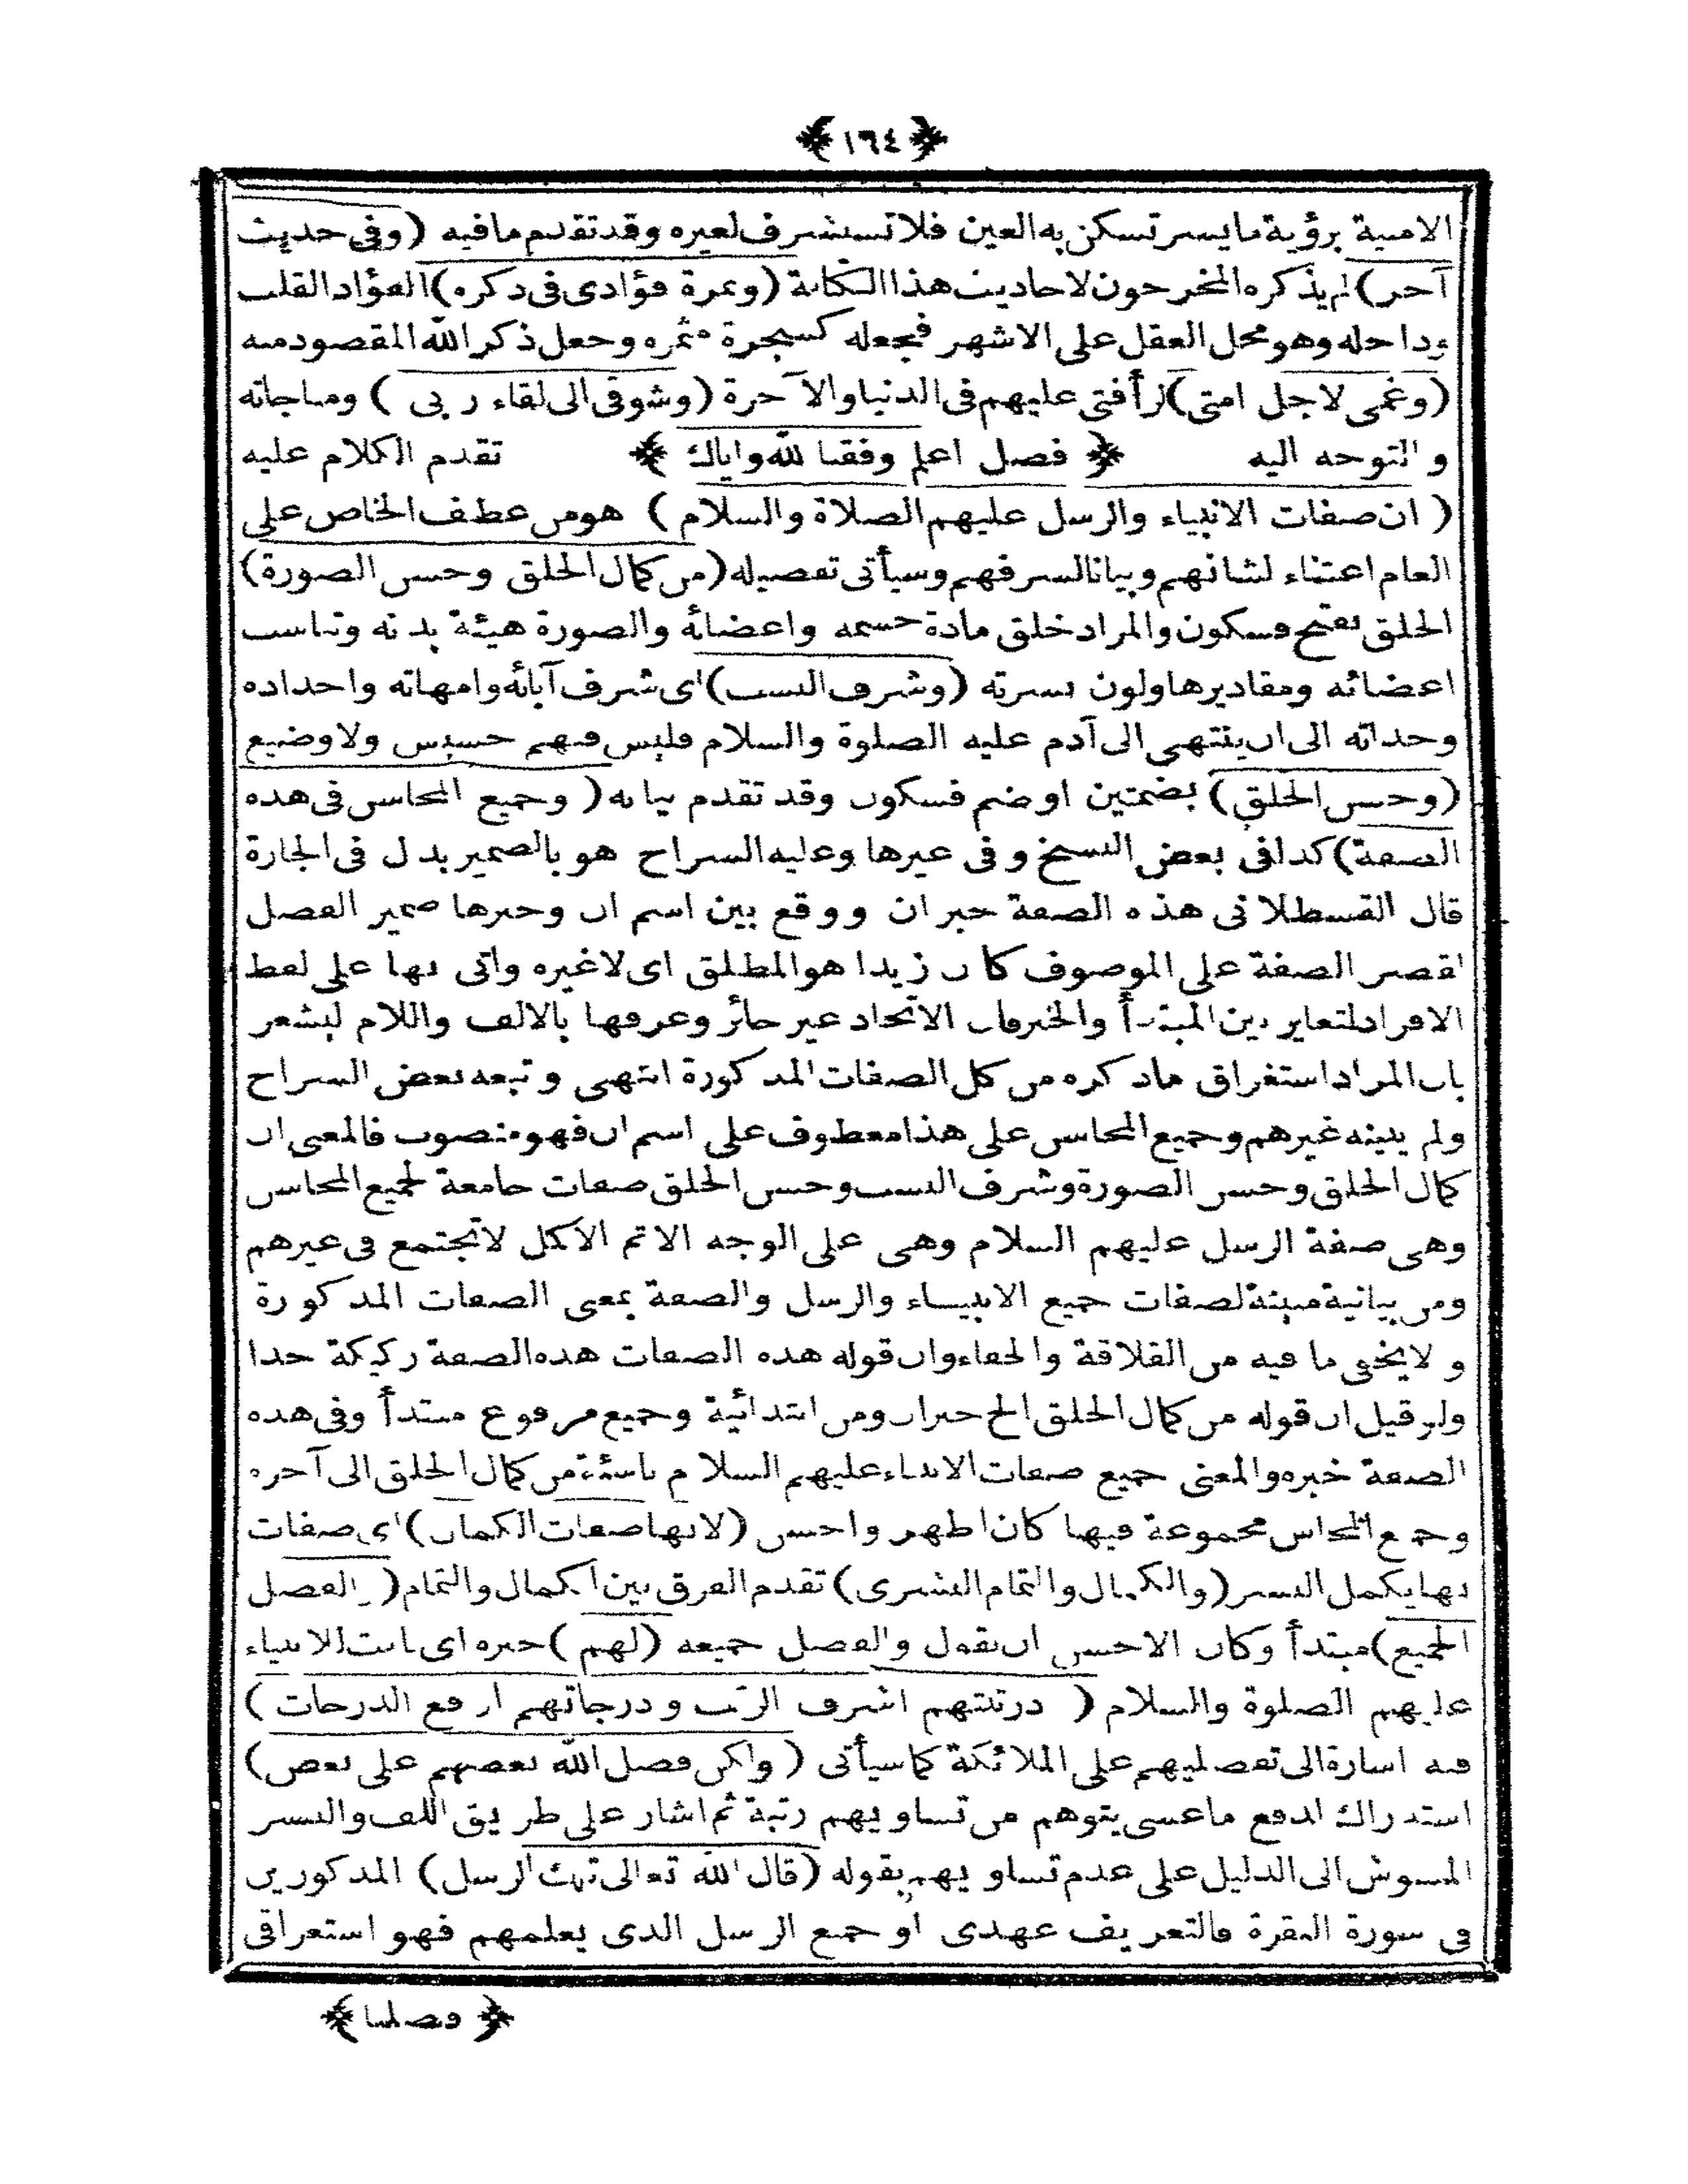 ﴿ ١٦٤ ﴾
الامنية برؤية مايسر تسكن به العين فلا تستشرف لغيره وقد تقدم مافيه (وفى حديث
آخر) لم يذكره المخرجون لاحاديث هذا الكتاب (وثمرة فؤادى فى ذكره) الفؤاد القلب
وداخله وهو محل العقل على الاشهر فجعله كشجرة مثمره وجعل ذكر الله المقصود منه
(وغمى لاجل امتى) لرأفتى عليهم فى الدنيا والآخرة (وشوقى الى لقاء ربى ) ومناجاته
والتوجه اليه ﴿ فصل اعلم وفقنا لله واياك ﴾ تقدم الكلام عليه
( ان صفات الانبياء والرسل عليهم الصلاة والسلام ) هو من عطف الخاص على
العام اعتناء لشانهم وبيانا لشرفهم وسيأتى تفصيله (من كمال الخلق وحسن الصورة)
الخلق بفتح فسكون والمراد خلق مادة جسمه واعضائه والصورة هيئة بدنه وتناسب
اعضائه ومقاديرها ولون بشرته (وشرف النسب) اى شرف آبائه وامهاته واجداده
وجداته الى ان ينتهى الى آدم عليه الصلوة والسلام فليس فيهم خسيس ولا وضيع
(وحسن الخلق) بضمتين او ضم فسكون وقد تقدم بيانه ( وجميع المحاسن فى هذه
الصفة) كذا فى بعض النسخ وفى غيرها وعليه الشراح هو بالضمير بدل فى الجارة
قال القسطلانى هذه الصفة خبر ان ووقع بين اسم ان وخبرها ضمير الفصل
لقصر الصفة على الموصوف كان زيدا هو المطلق اى لاغيره واتى بها على لفظ
الافراد لتغاير بين المبتدأ والخبر فان الاتحاد غير جائز وعرفها بالالف واللام ليشعر
بان المراد استغراق ماذكره من كل الصفات المذكورة انتهى وتبعه بعض الشراح
ولم يبينه غيرهم وجميع المحاسن على هذا معطوف على اسم ان فهو منصوب فالمعنى ان
كمال الخلق وحسن الصورة وشرف النسب وحسن الخلق صفات جامعة لجميع المحاسن
وهى صفة الرسل عليهم السلام وهى على الوجه الاتم الاكمل لاتجتمع فى غيرهم
ومن بيانية مبينة لصفات جميع الانبياء والرسل والصفة بمعنى الصفات المذكورة
ولا يخفى ما فيه من القلاقة والخفاء وان قوله هذه الصفات هذه الصفة ركيكة جدا
ولو قيل ان قوله من كمال الخلق الخ خبر ان ومن ابتدائية وجميع مرفوع مبتدأ وفى هذه
الصفة خبره والمعنى جميع صفات الانبياء عليهم السلام ناشئة من كمال الخلق الى آخره
وجميع المحاسن مجموعة فيها كان اظهر واحسن (لانها صفات الكمال) اى صفات
بها يكمل البشر (والكمال والتمام البشرى) تقدم الفرق بين الكمال والتمام (والفضل
الجميع) مبتدأ وكان الاحسن ان يقول والفضل جميعه (لهم) خبره اى ثابت للانبياء
عليهم الصلوة والسلام ( درتبتهم اشرف الرتب ودرجاتهم ارفع الدرجات )
فيه اشارة الى تفضيلهم على الملائكة كما سيأتى (ولكن فضل الله بعضهم على بعض)
استدراك لدفع ما عسى يتوهم من تساويهم رتبة ثم اشار على طريق اللف والنشر
المشوش الى الدليل على عدم تساويهم بقوله (قال الله تعالى تلك الرسل) المذكورين
فى سورة البقرة فالتعريف عهدى او جميع الرسل الذى يعلمهم فهو استغراقى
﴿ فضلنا ﴾